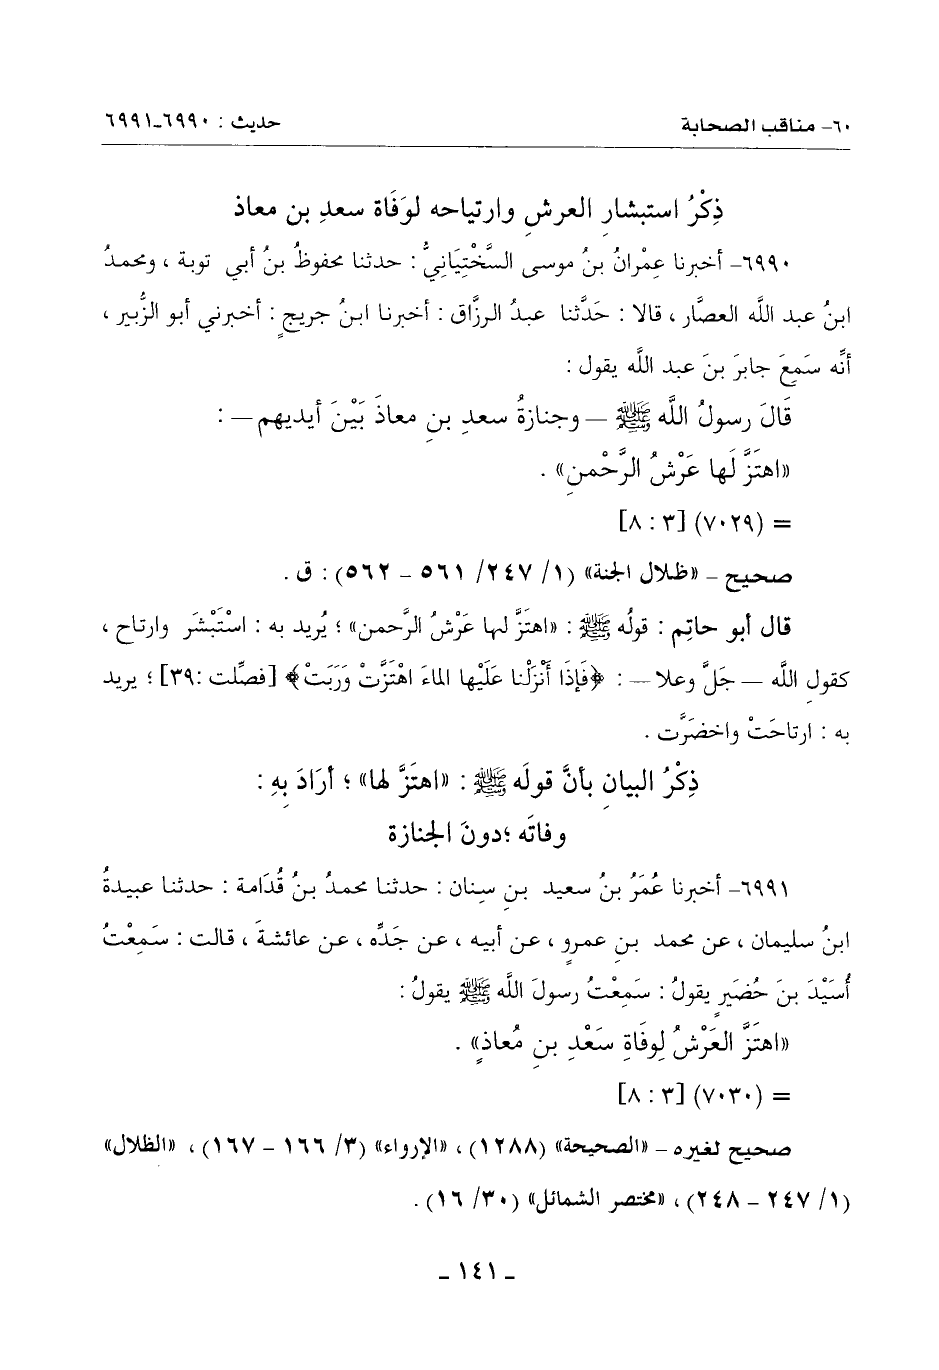 ٦٠- مناقب الصحابة حديث : ٦٩٩٠-٦٩٩١
ذِكْرُ استبشارِ العرشِ وارتياحه لوَفَاة سعدِ بن معاذ
٦٩٩٠- أخبرنا عِمْرانُ بنُ موسى السَّخْتِيَانِيُّ : حدثنا محفوظُ بنُ أبي توبة ، ومحمدُ
ابنُ عبد اللَّه العصَّار ، قالا : حَدَّثنا عبدُ الرزَّاق : أخبرنا ابنُ جريجٍ : أخبرني أبو الزُّبير ،
أنَّه سَمِعَ جابرَ بنَ عبد اللَّه يقول :
قَالَ رسولُ اللَّه ﷺ — وجنازةُ سعدِ بنِ معاذَ بَيْنَ أيديهم — :
«اهتَزَّ لَها عَرْشُ الرَّحْمنِ» .
= (٧٠٢٩) [٣ : ٨]
صحيح - «ظلال الجنة» (١/ ٢٤٧/ ٥٦١ - ٥٦٢) : ق .
قال أبو حاتِم : قولُه ﷺ : «اهتَزَّ لها عَرْشُ الرَّحمن» ؛ يُريد به : اسْتَبْشَر وارتاح ،
كقولِ اللَّه — جَلَّ وعلا — : ﴿فَإِذَا أَنْزَلْنا عَلَيْها الماءَ اهْتَزَّتْ وَرَبَتْ﴾ [فصِّلت :٣٩] ؛ يريد
به : ارتاحَتْ واخضَرَّت .
ذِكْرُ البيانِ بأنَّ قولَه ﷺ : «اهتَزَّ لها» ؛ أرَادَ بِهِ :
وفاتَه ؛دونَ الجنازة
٦٩٩١- أخبرنا عُمَرُ بنُ سعيد بنِ سِنان : حدثنا محمدُ بنُ قُدَامة : حدثنا عبيدةُ
ابنُ سليمان ، عن محمد بنِ عمرٍو ، عن أبيه ، عن جَدِّه ، عن عائشةَ ، قالت : سَمِعْتُ
أُسَيْدَ بنَ حُضَيرٍ يقولُ : سَمِعْتُ رسولَ اللَّه ﷺ يقولُ :
«اهتَزَّ العَرْشُ لِوفَاةِ سَعْدِ بنِ مُعاذٍ» .
= (٧٠٣٠) [٣ : ٨]
صحيح لغيره - «الصحيحة» (١٢٨٨) ، «الإرواء» (٣/ ١٦٦ - ١٦٧) ، «الظلال»
(١/ ٢٤٧ - ٢٤٨) ، «مختصر الشمائل» (٣٠/ ١٦) .
- ١٤١ -